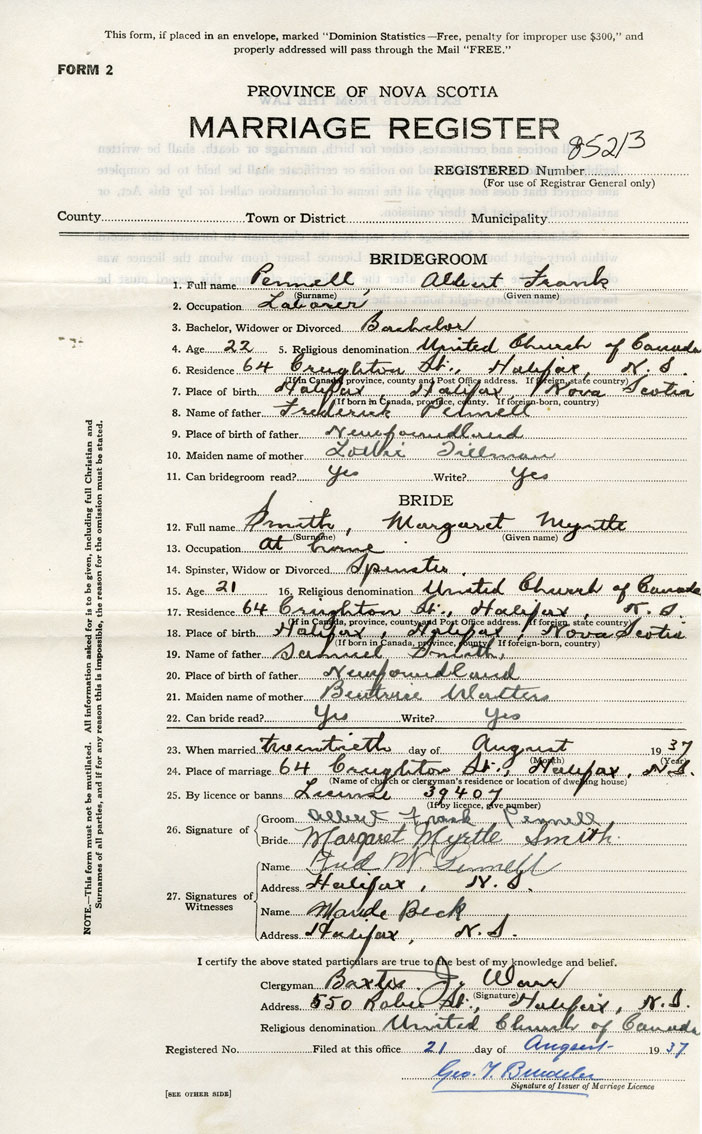 This form, if placed in an envelope, marked "Dominion Statistics—Free, penalty for improper use $300," and
properly addressed will pass through the Mail "FREE."
FORM 2
PROVINCE OF NOVA SCOTIA
MARRIAGE REGISTER
REGISTERED Number 85213
(For use of Registrar General only)
County Town or District Municipality
BRIDEGROOM
1. Full name Pennell, Albert Frank
(Surname) (Given name)
2. Occupation Laborer
3. Bachelor, Widower or Divorced Bachelor
4. Age 22 5. Religious denomination United Church of Canada
6. Residence 64 Creighton St., Halifax, N.S.
(If in Canada, province, county and Post Office address. If foreign, state country)
7. Place of birth Halifax Halifax, Nova Scotia
(If born in Canada, province, county. If foreign-born, country)
8. Name of father Frederick Pennell
9. Place of birth of father Newfoundland
10. Maiden name of mother Lottie Tillman
11. Can bridegroom read? Yes Write? Yes
BRIDE
12. Full name Smith, Margaret Myrtle
(Surname) (Given name)
13. Occupation At home
14. Spinster, Widow or Divorced Spinster
15. Age 21 16. Religious denomination United Church of Canada
17. Residence 64 Creighton St., Halifax, N.S.
(If in Canada, province, county and Post Office address. If foreign, state country)
18. Place of birth Halifax, Halifax, Nova Scotia
(If born in Canada, province, county. If foreign-born, country)
19. Name of father Samuel Smith
20. Place of birth of father Newfoundland
21. Maiden name of mother Beatrice Watters
22. Can bride read? Yes Write? Yes
23. When married twentieth day of August 1937
(Month) (Year)
24. Place of marriage 64 Creighton St., Halifax, N.S.
(Name of church or clergyman's residence or location of dwelling house)
25. By licence or banns License 39407
(If by licence, give number)
26. Signature of Groom Albert Frank Pennell
Bride Margaret Myrtle Smith
27. Signatures of Witnesses
Name Fred W. Pennell
Address Halifax, N.S.
Name Maude Beck
Address Halifax, N.S.
I certify the above stated particulars are true to the best of my knowledge and belief.
Clergyman Baxter J.
(Signature)
Address 550 Robie St., Halifax, N.S.
Religious denomination United Church of Canada
Registered No. Filed at this office 21 day of August 1937
Geo. T.
Signature of Issuer of Marriage Licence
[SEE OTHER SIDE]
NOTE.—This form must not be mutilated. All information asked for is to be given, including full Christian and
Surnames of all parties, and if for any reason this is impossible, the reason for the omission must be stated.